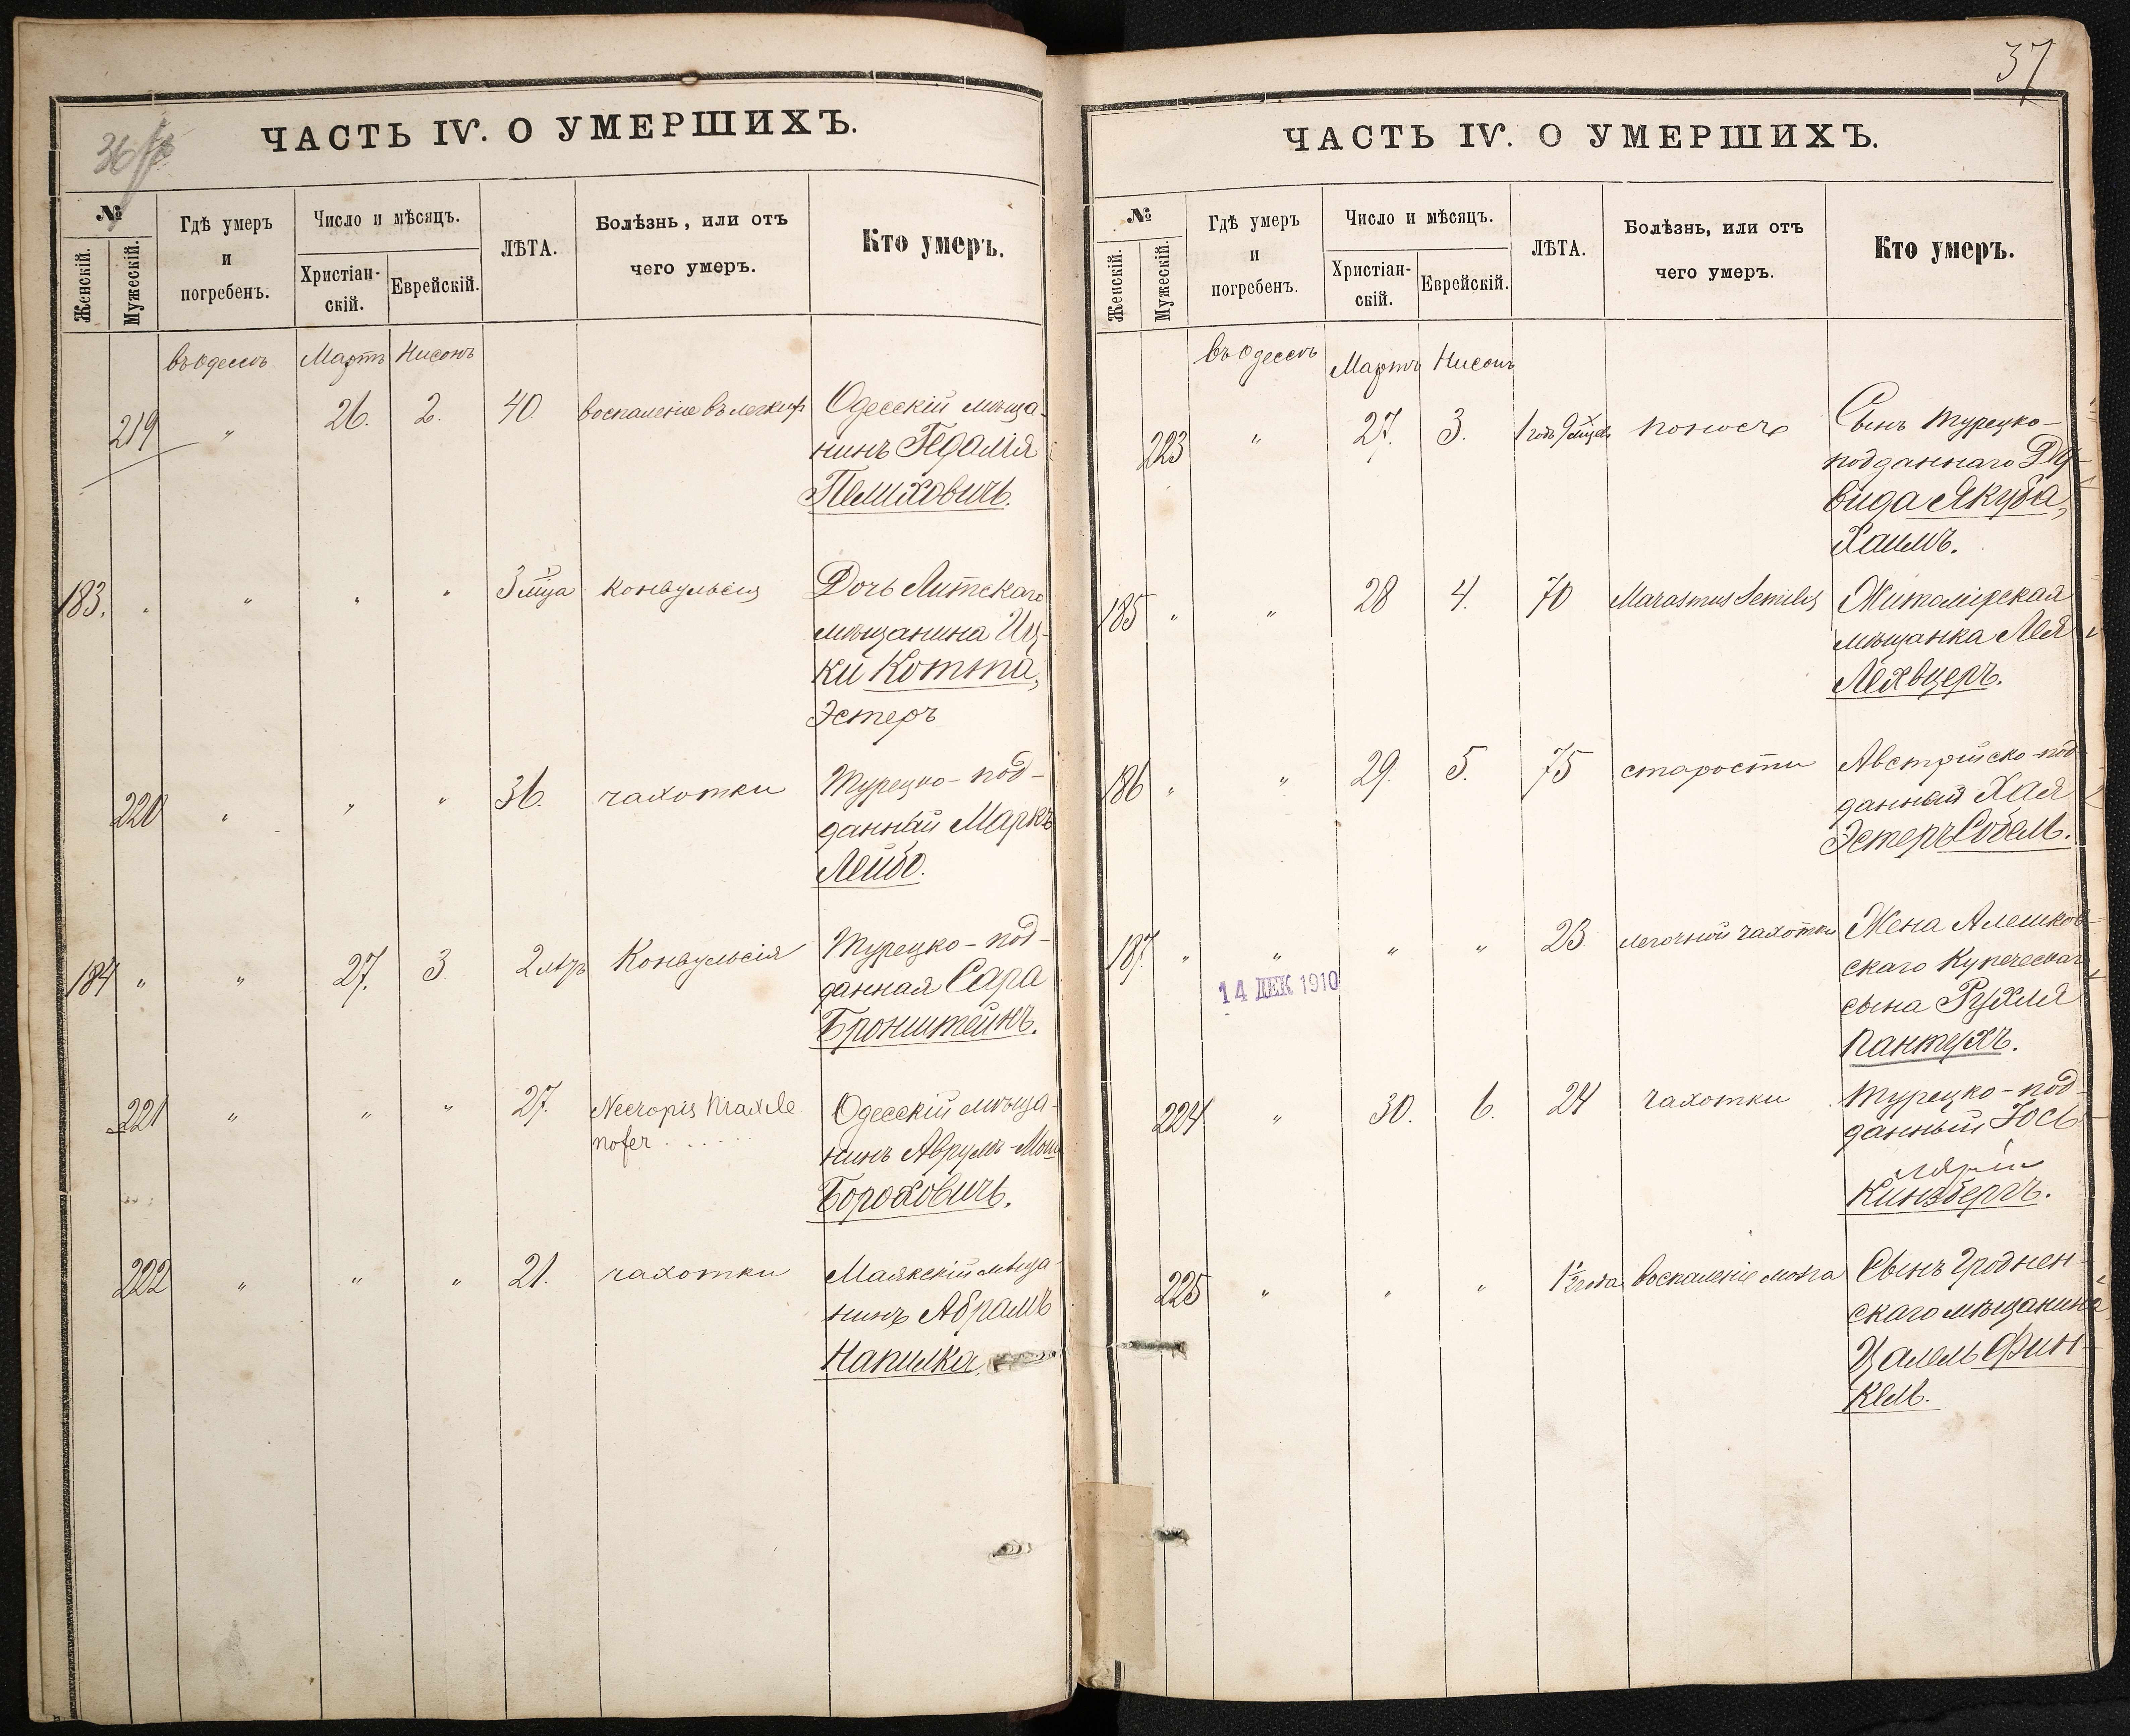 36
ЧАСТЬ IV. О УМЕРШИХЪ.
№
Женскій.
Мужескій.
Гдѣ умеръ
и
погребенъ.
Число и мѣсяцъ.
Христіан-
скій.
Еврейскій.
ЛѢТА.
Болѣзнь, или отъ
чего умеръ.
Кто умеръ.
въ Одессѣ Мартъ Нисонъ
219 " 26. 2. 40. воспаленіе въ легкихъ Одесскій мѣща-
нинъ Гедалія
Пелиховичъ.
183. " " " " 3 м-ца конвульсія Дочь Литскаго
мѣщанина Иц-
ки Котта,
Эстеръ
220 " " " 36. чахотки Турецко-под-
данный Маркъ
Лейбо.
184 " " 27. 3. 2 Конвульсія Турецко-под-
данная Сара
Бронштейнъ.
221 " " " 27. Одесскій мѣща-
нинъ Аврумъ-Мош
Бороховичъ.
222 " " " 21. чахотки Маякскій мѣща-
нинъ Абрамъ
Напилка.
37
ЧАСТЬ IV. О УМЕРШИХЪ.
№
Женскій.
Мужескій.
Гдѣ умеръ
и
погребенъ.
Число и мѣсяцъ.
Христіан-
скій.
Еврейскій.
ЛѢТА.
Болѣзнь, или отъ
чего умеръ.
Кто умеръ.
въ Одессѣ Мартъ Нисонъ
223 " 27. 3. 1 годъ 9 поносъ Сынъ турецко-
подданнаго Да
вида Якуба,
Хаимъ.
185 " " 28 4. 70 Marasmus Senilis Житомірская
мѣщанка Лея
Лехвцеръ.
186 " " 29. 5. 75 старости Австрійско-под
данный Хая
Эстеръ Собель.
187. " " " " 23. легочной чахотки Жена Алешков-
скаго Купеческаго
сына Рухля
Пантехъ.
14 ДЕК 1910
224 " 30. 6. 24 чахотки Турецко-под-
данный Іось
Кинзбергъ.
225 " " " 1½ года воспаленіе мозга Сынъ Гроднен-
скаго мѣщанина
Цалель Фин-
кель.